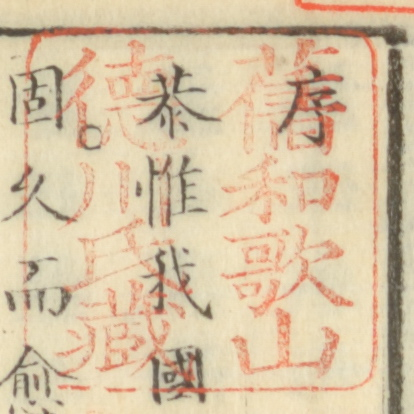 序
恭惟我國
固久而愈
舊和歌山
德川氏藏